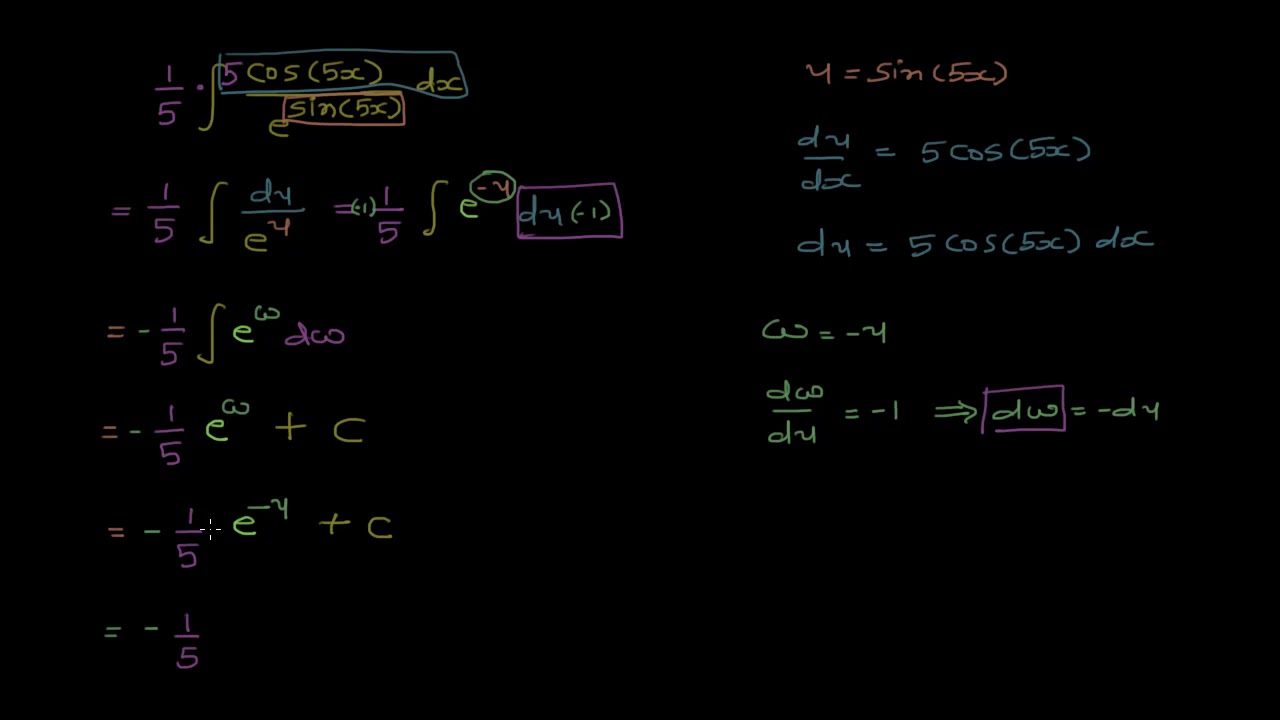 1/5 · ∫ 5 cos(5x) dx / e^sin(5x)
= 1/5 ∫ dy / e^y = (-1) 1/5 ∫ e^-y dy (-1)
= - 1/5 ∫ e^ω dω
= - 1/5 e^ω + c
= - 1/5 e^-y + c
= - 1/5
y = sin(5x)
dy/dx = 5 cos(5x)
dy = 5 cos(5x) dx
ω = -y
dω/dy = -1 ⇒ dω = -dy